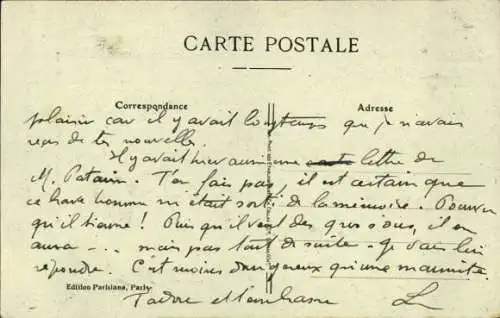 CARTE POSTALE
Correspondance
Adresse
plaisir car il y avait longtemps que je n'avais
reçu de tes nouvelles
Il y avait hier aussi une lettre de
M. Patain. T'en fais pas, il est certain que
ce brave homme m'était sorti de la mémoire. Pourvu
qu'il tienne! Puis qu'il veut des gros sous, il en
aura - .. mais pas tout de suite. Je vais lui
répondre. C'est moins dangereux qu'une marmite.
Edition Parisiana, Paris
J'adore et t'embrasse